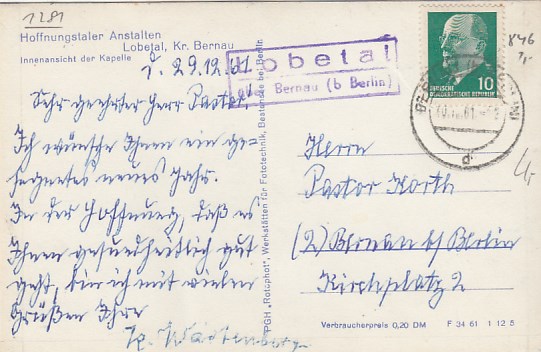 1281
Hoffnungstaler Anstalten
Lobetal, Kr. Bernau
Innenansicht der Kapelle
d. 29.12.61
Sehr geehrter Herr Pastor,
Ich wünsche Ihnen ein ge-
segnetes neues Jahr.
In der Hoffnung, daß es
Ihnen gesundheitlich gut
geht, bin ich mit vielen
Grüßen Ihre
Wartenberg
PGH „Rotophot“, Werkstätten für Fototechnik, Bestensee bei Berlin
Lobetal
Bernau (b Berlin)
10
DEUTSCHE
DEMOKRATISCHE REPUBLIK
846
d
Herrn
Pastor Korth
(2) Bernau b/Berlin
Kirchplatz 2
Verbraucherpreis 0,20 DM F 34 61 1 12 5